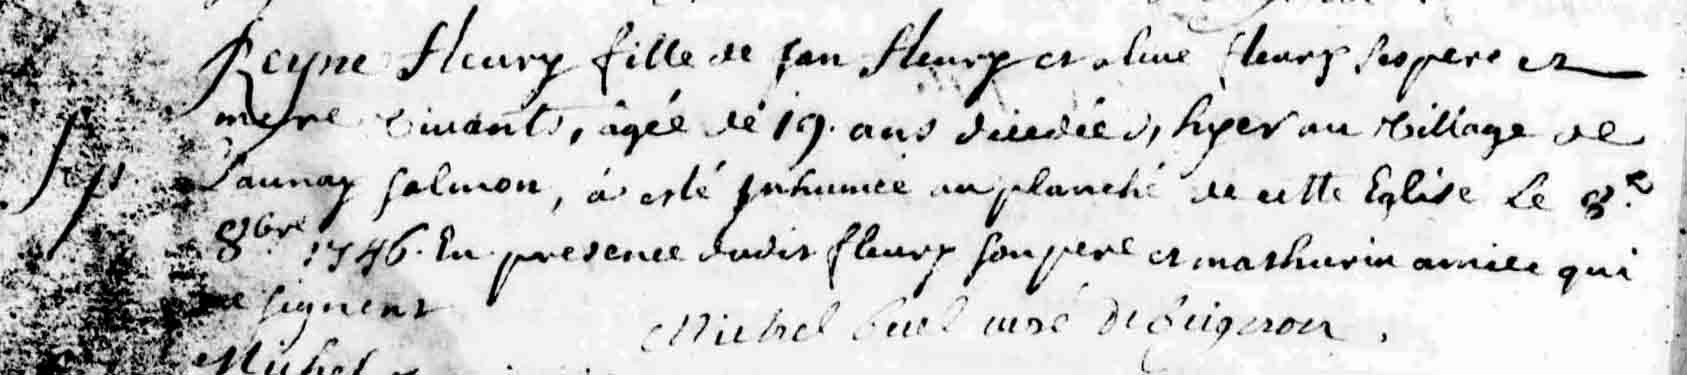 Reyne fleury fille de Jan fleury et fleury ses pere et
mere vivants, agée de 19. ans décedée, hyer au village de
Launay salmon, a esté Inhumée au planché de cette Eglise Le 8.e
8bre 1746. En presence dudit fleury son pere et mathurin qui
ne signent
Michel curé De
Michel